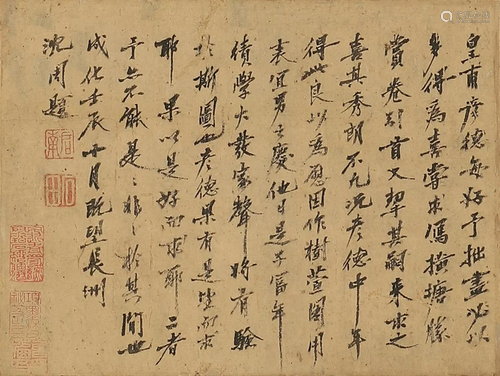 皇甫彥德每好予拙畫必以
多得為喜嘗求寫橫塘勝
賞卷引首又挈其嗣來求之
喜其秀朗不凡況彥德中年
得此良以為慰因作樹萱圖用
表宜男之慶他日是子富年
績學大發家聲將有驗
於斯圖也彥德果有是望而求
耶果以是好而求耶二者
予亦不能是是非非於其間也
成化壬辰十月既望長洲
沈周題